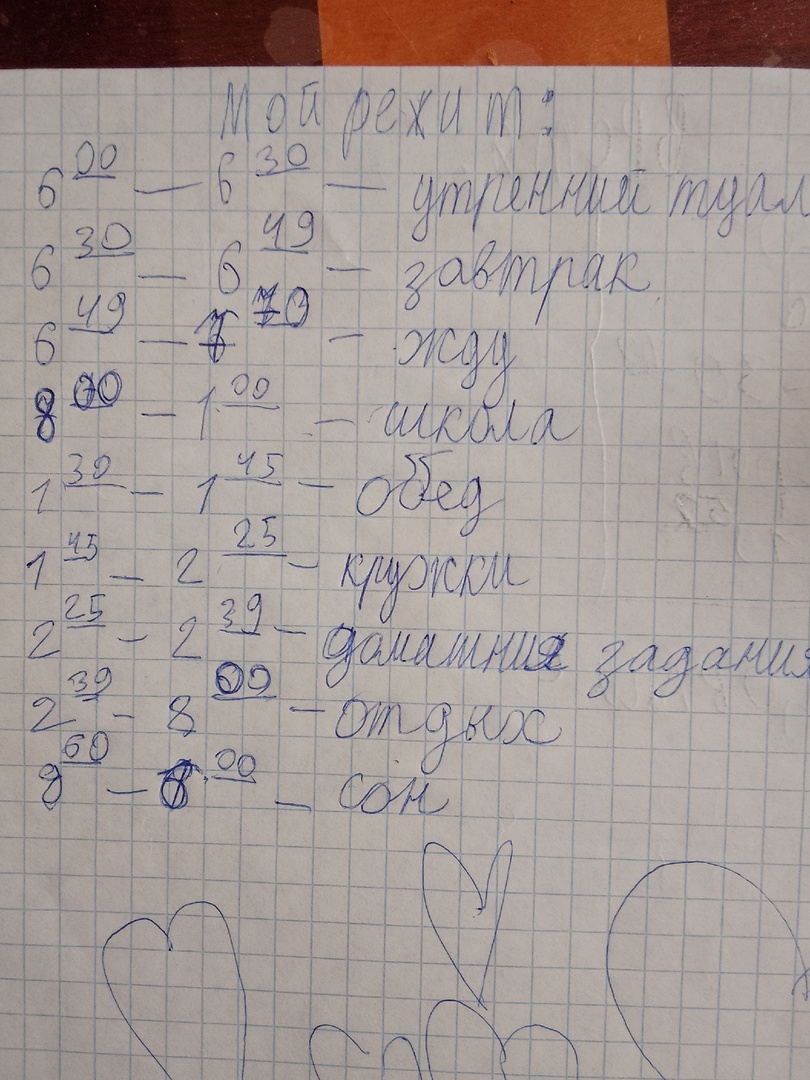 Мой режит:
6 00 — 6 30 — утренний туал
6 30 — 6 49 — завтрак
6 49 — 7 70 — жду
8 00 — 1 00 — школа
1 30 — 1 45 — обед
1 45 — 2 25 — кружки
2 25 — 2 39 — доматния задания
2 39 — 8 09 — отдых
9 60 — 6 00 — сон